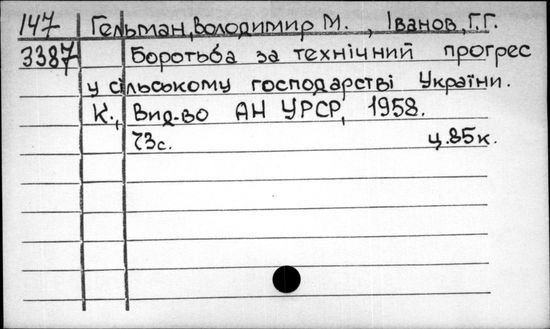 147 Гельман, Володимир М. , Іванов, Г.Г.
3387 Боротьба за технічний прогрес
у сільському господарстві України.
К., Вид-во АН УРСР, 1958.
73с. ц.85к.